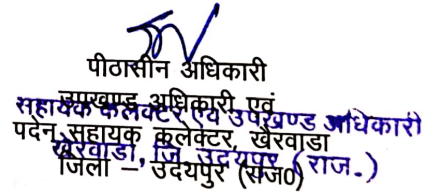 पीठासीन अधिकारी
उपखण्ड अधिकारी एवं
सहायक कलेक्टर एवं उपखण्ड अधिकारी
पदेन सहायक कलेक्टर, खैरवाडा
खेरवाडा, जि. उदयपुर (राज.)
जिला – उदयपुर (राज0)